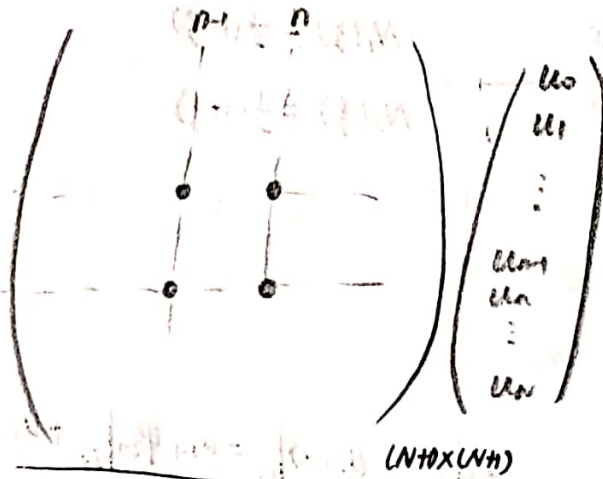 n-1 n
u₀
u₁
⋮
uₙ₋₁
uₙ
⋮
u_N
(N+1)×(N+1)